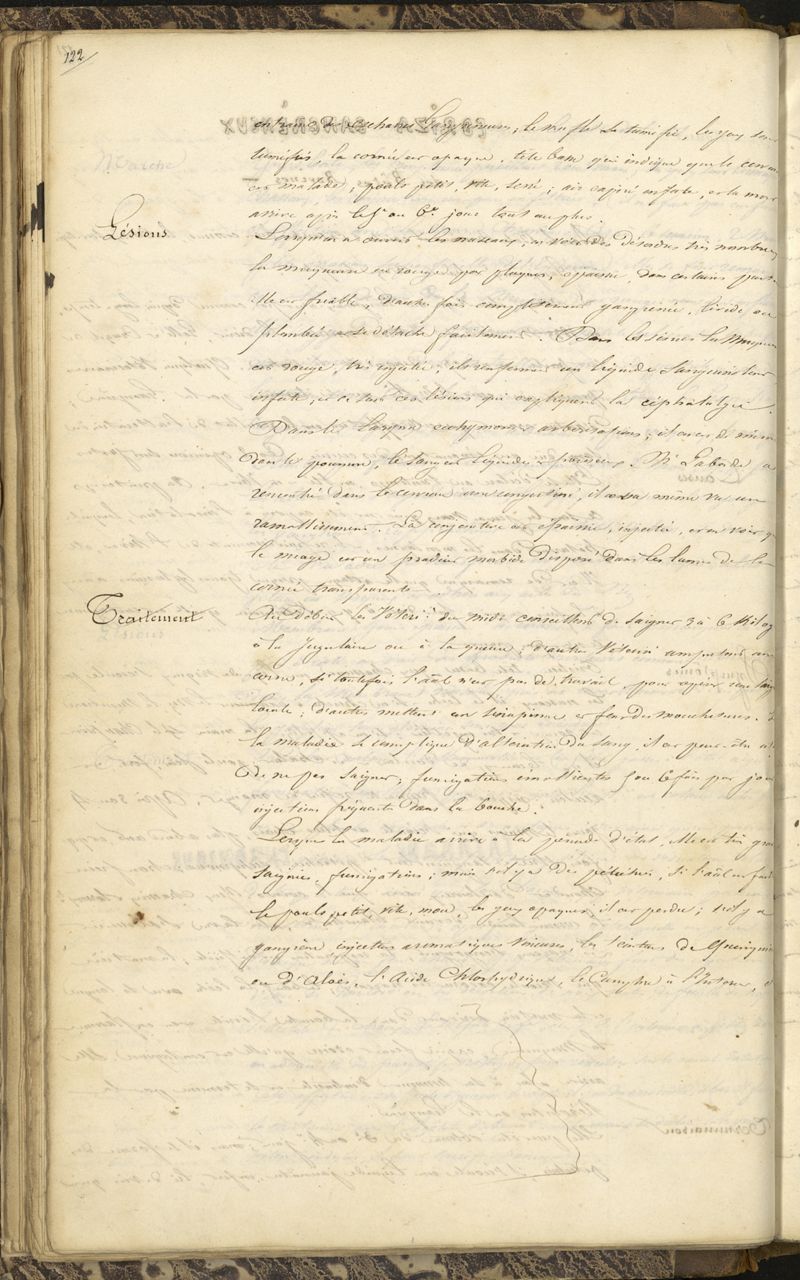 122
entraine des escharres gangreneuses, le mufle se tumefie, les yeux sont
tumifiés, la cornée est opaque, tête basse qui indique que le cerveau
est malade, pouls petit, vite, serré; air expiré infecte, et la mort
arrive après le 5e ou 6e jour tout au plus.
Lésions
Lorsqu'on a ouvert les naseaux, on voit des désordres très nombreux
la muqueuse est rouge par plaques, épaissie, dans certains points
elle est friable, d'autres fois complètement gangrenée, livide ou
plombée se détache facilement. Dans les sinus la Muqueuse
est rouge, très injectée; ils renferment un liquide sanguinolent
infecte, et ce sont ces lésions qui expliquent la céphalalgie.
Dans le Larynx ecchymoses arborisations, il en est de même
dans le poumon, le sang est liquide poisseux. Mr Laborde a
rencontré dans le cerveau une congestion, il a même vu un
ramollissement. La conjonctive est épaissie, injectée, et on voit que
le nuage est un produit morbide disposé dans les lames de la
cornée transparente.
Traitement
Au début les Vétéri. du midi conseillent de saigner 3 à 6 Kilog
à la Jugulaire ou à la queue; d'autres Vétérin amputent une
corne, si toutefois l'aâl n'est pas de travail, pour opérer une saig
locale; d'autres mettent un sinapisme et font des mouchetures. Si
la maladie se complique d'altération du sang, il est peut-être
de ne pas saigner; fumigations émollientes 5 ou 6 fois par jour
injections fréquentes dans la bouche.
Lorsque la maladie arrive à la période d'état, elle est très grave
saignées, fumigations; mais s'il y a des pétéchies, si l'aâl est faible
le pouls petit, vite, mou, les yeux opaques, il est perdu; s'il y a
gangrène, injections aromatiques vineuses, les teintures de Quinquina
ou d'Aloès, l'Acide Chlorhydrique, le Camphre à l'Intérieur,